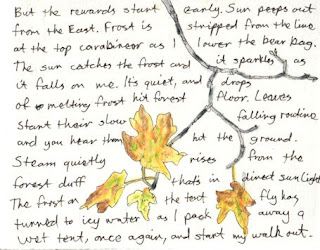 But the rewards start early. Sun peeps out
from the East. Frost is stripped from the line
at the top carabineer as I lower the bear bag.
The sun catches the frost and it sparkles as
it falls on me. It's quiet, and drops
of melting frost hit forest floor. Leaves
start their slow falling routine
and you hear them hit the ground.
Steam quietly rises from the
forest duff that's in direct sunlight
The frost on the tent fly has
turned to icy water as I pack away a
wet tent, once again, and start my walk out.